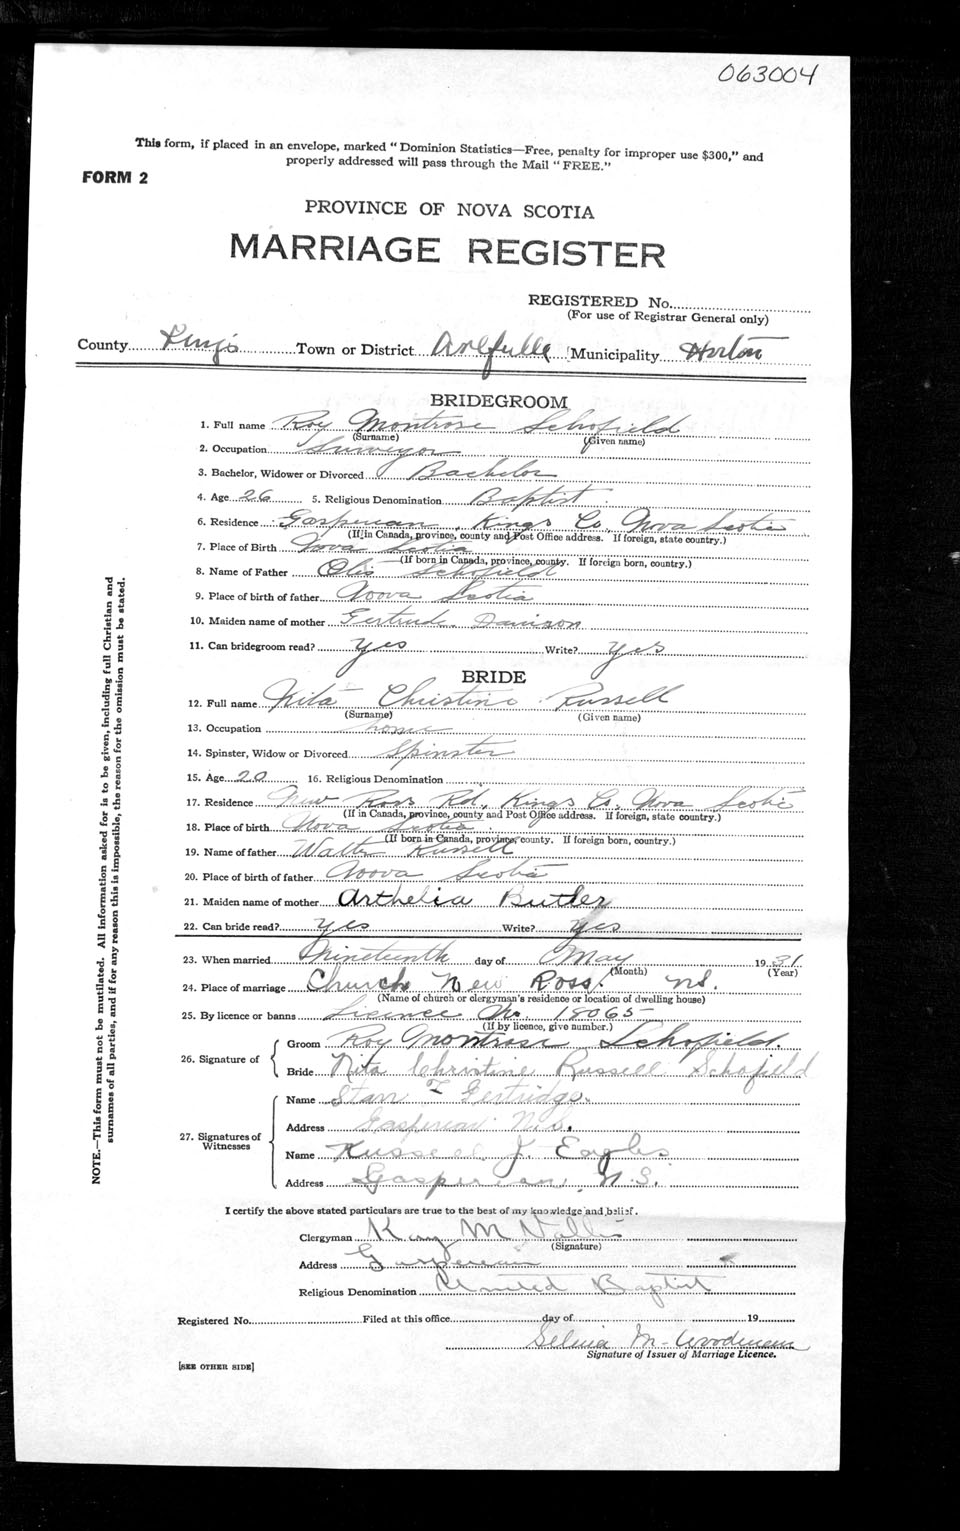 063004
This form, if placed in an envelope, marked "Dominion Statistics—Free, penalty for improper use $300," and
properly addressed will pass through the Mail "FREE."
FORM 2
PROVINCE OF NOVA SCOTIA
MARRIAGE REGISTER
REGISTERED No.
(For use of Registrar General only)
County King's Town or District Municipality Horton
BRIDEGROOM
1. Full name Roy Montrose Schofield
(Surname) (Given name)
2. Occupation Surveyor
3. Bachelor, Widower or Divorced Bachelor
4. Age 26 5. Religious Denomination Baptist
6. Residence Gaspereau, Kings Co. Nova Scotia
(If in Canada, province, county and Post Office address. If foreign, state country.)
7. Place of Birth Nova Scotia
(If born in Canada, province, county. If foreign born, country.)
8. Name of Father Otis Schofield
9. Place of birth of father Nova Scotia
10. Maiden name of mother Gertrude Davison
11. Can bridegroom read? Yes Write? Yes
BRIDE
12. Full name Nita Christine Russell
(Surname) (Given name)
13. Occupation home
14. Spinster, Widow or Divorced Spinster
15. Age 20 16. Religious Denomination
17. Residence New Ross Rd, Kings Co, Nova Scotia
(If in Canada, province, county and Post Office address. If foreign, state country.)
18. Place of birth Nova Scotia
(If born in Canada, province, county. If foreign born, country.)
19. Name of father Walter Russell
20. Place of birth of father Nova Scotia
21. Maiden name of mother Arthelia Butler
22. Can bride read? yes Write? yes
23. When married Nineteenth day of May 1931
(Month) (Year)
24. Place of marriage Church New Ross. NS.
(Name of church or clergyman's residence or location of dwelling house)
25. By licence or banns Licence No 18065
(If by licence, give number.)
26. Signature of
Groom Roy Montrose Schofield.
Bride Nita Christine Russell Schofield
27. Signatures of Witnesses
Name Starr
Address Gaspereau N.S.
Name Russell J. Eagles
Address Gaspereau, N.S.
I certify the above stated particulars are true to the best of my knowledge and belief.
Clergyman M
(Signature)
Address Gaspereau
Religious Denomination United Baptist
Registered No. Filed at this office day of 19
Selina M. Woodman
Signature of Issuer of Marriage Licence.
[SEE OTHER SIDE]
NOTE.—This form must not be mutilated. All information asked for is to be given, including full Christian and
surnames of all parties, and if for any reason this is impossible, the reason for the omission must be stated.